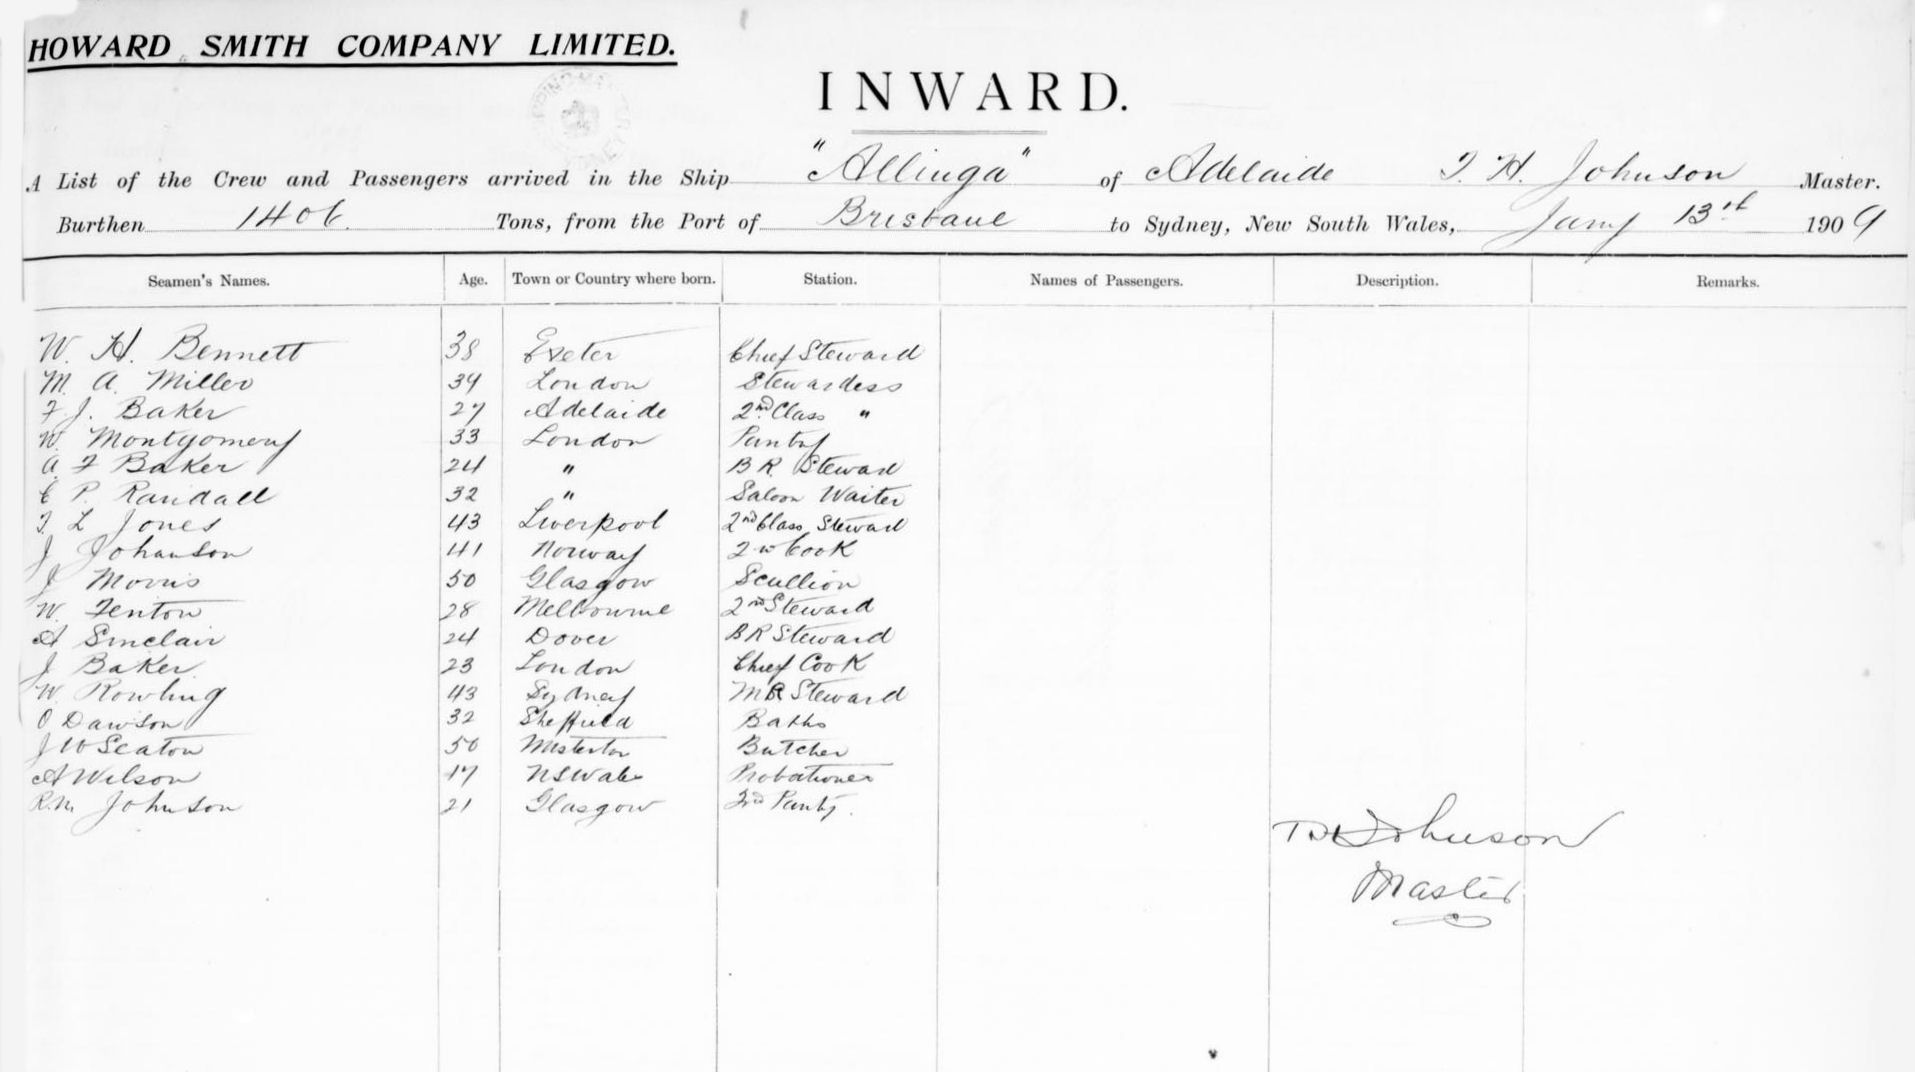 HOWARD SMITH COMPANY LIMITED.
INWARD.
A List of the Crew and Passengers arrived in the Ship "Allinga" of Adelaide T. H. Johnson Master.
Burthen 1406 Tons, from the Port of Brisbane to Sydney, New South Wales, Jany 13th 1909
Seamen's Names. Age. Town or Country where born. Station. Names of Passengers. Description. Remarks.
W. H. Bennett 38 Exeter Chief Steward
M. A. Miller 34 London Stewardess
F. J. Baker 27 Adelaide 2nd Class "
W. Montgomery 33 London Pantry
A. F Baker 24 " B R. Steward
C P. Randall 32 " Saloon Waiter
T. L Jones 43 Liverpool 2nd Class Steward
J Johanson 41 Norway 2nd Cook
J Morris 50 Glasgow Scullion
W. Fenton 28 Melbourne 2nd Steward
A Sinclair 24 Dover B R Steward
J Baker 23 London Chief Cook
W. Rowling 43 Sydney M R Steward
O Dawson 32 Sheffield Baths
J W Seaton 50 Misterton Butcher
A Wilson 17 N S Wales Probationer
R. M. Johnson 21 Glasgow 3rd Pantry.
TH Johnson
Master